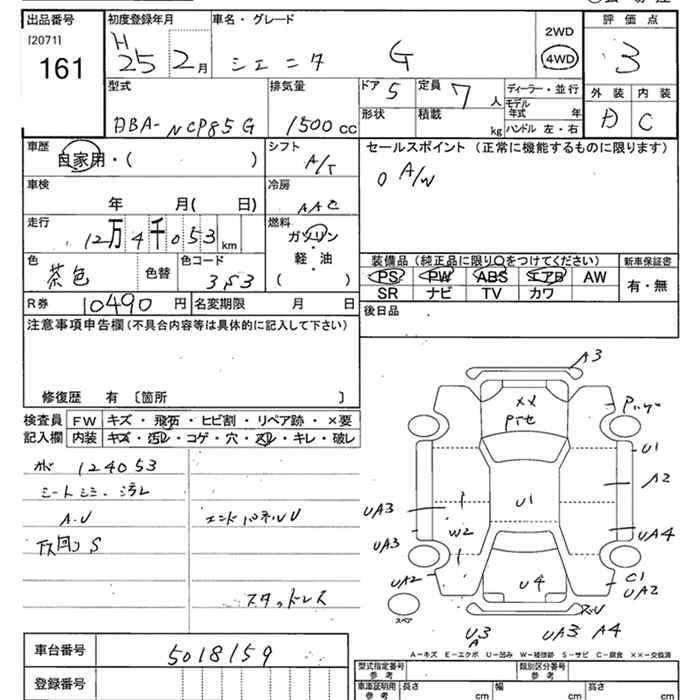 出品番号 初度登録年月 車名・グレード 2WD 評価点
[2071] 161 H 25 2月 シエンタ G 4WD 3
型式 排気量 ドア 5 定員 7人 ディーラー・並行 外装 内装
DBA-NCP85G 1500cc 形状 積載 kg モデル年式 年 ハンドル 左・右 C
車歴 自家用・( ) シフト A/T セールスポイント(正常に機能するものに限ります)
車検 年 月( 日) 冷房 AAC 0 A/W
走行 12万4千053km 燃料 ガソリン・軽・油 ( )
装備品(純正品に限り○をつけてください) 新車保証書
色 茶色 色替 色コード 3P3 PS PW ABS エアB AW 有・無
SR ナビ TV カワ
R券 10490円 名変期限 月 日 後日品
注意事項申告欄(不具合内容等は具体的に記入して下さい)
修復歴 有 〔箇所 〕
検査員 FW キズ・飛石・ヒビ割・リペア跡・×要
記入欄 内装 キズ・汚レ・コゲ・穴・スレ・キレ・破レ
124053
シートシミ・汚レ
A・U エンドパネルU
下回りS
スタッドレス
A3
XX
U1
A2
U1
UA3
W2
UA4
UA3
UA2
C1
UA2
U4
スペア
U3
A
UA3 A4
A-キズ E-エクボ U-凹み W-補修跡 S-サビ C-腐食 ××-交換済
車台番号 5018159
型式指定番号 参考 類別区分番号 参考
登録番号
車庫証明用 参考 長さ cm 幅 cm 高さ cm